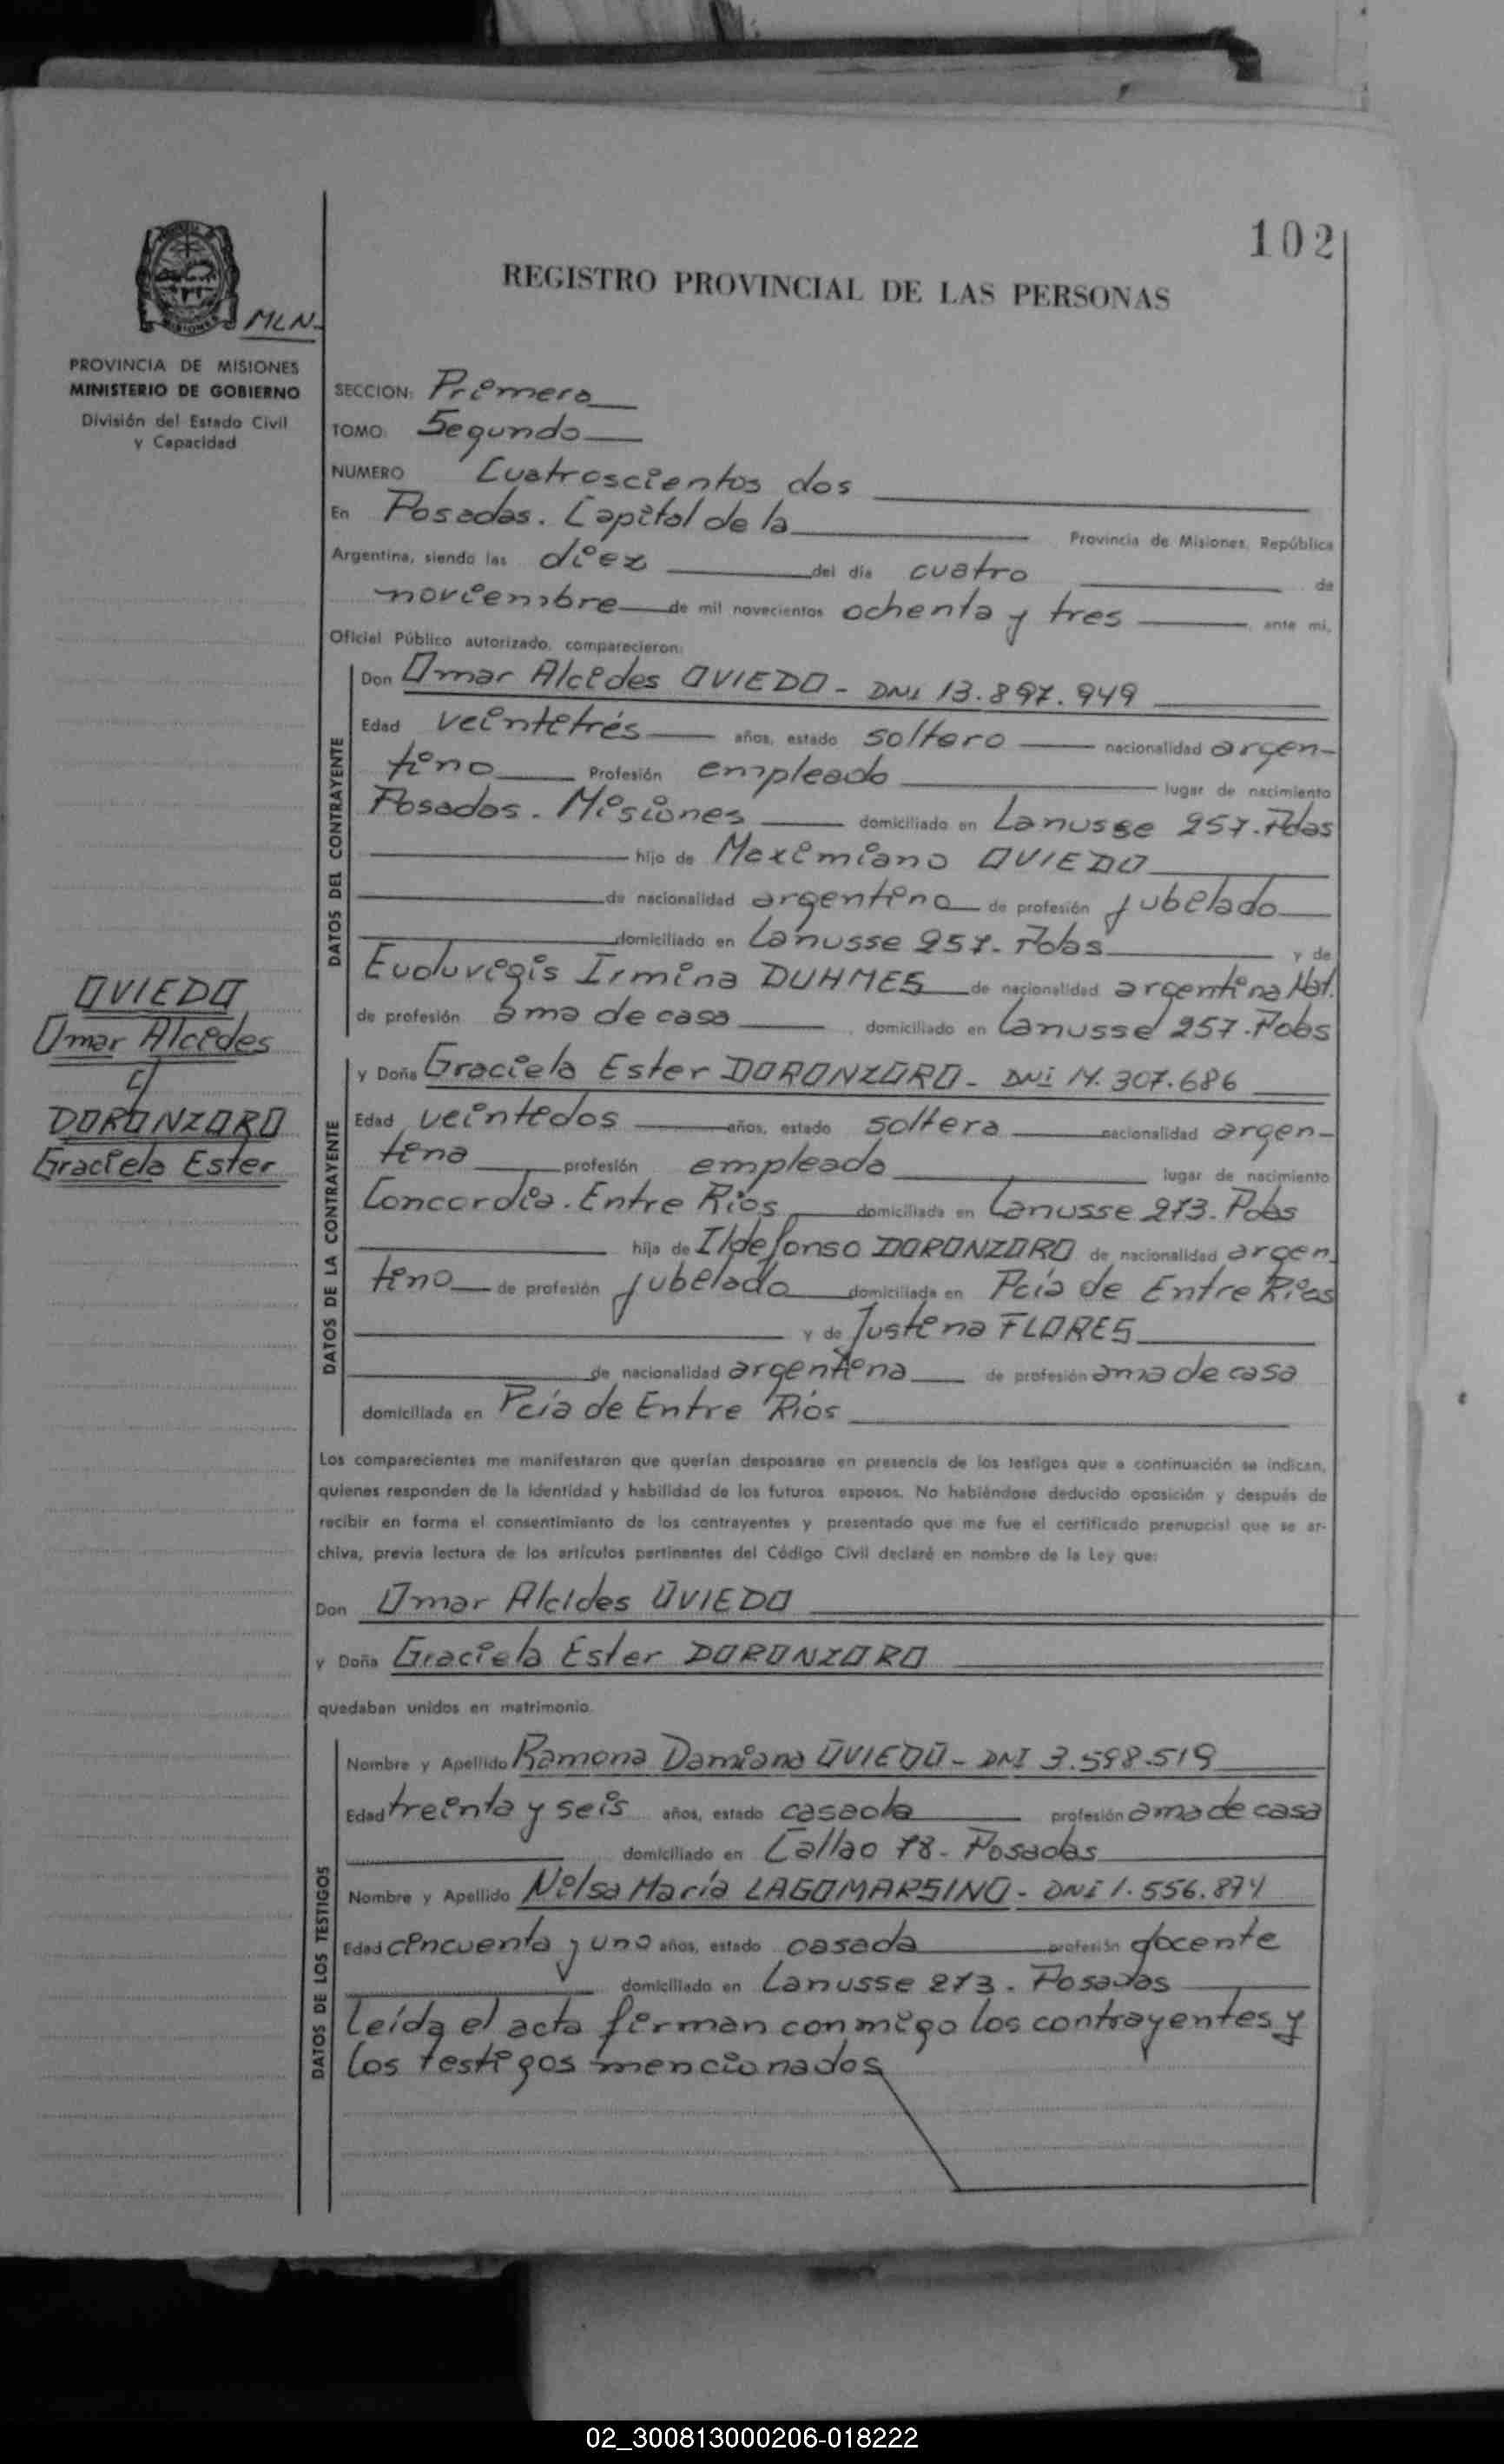 102
REGISTRO PROVINCIAL DE LAS PERSONAS
MISIONES
MLN
PROVINCIA DE MISIONES
MINISTERIO DE GOBIERNO
División del Estado Civil
y Capacidad
SECCION: Primera
TOMO: Segundo
NUMERO Cuatroscientos dos
En Posadas. Capital de la Provincia de Misiones, República
Argentina, siendo las diez del día cuatro de
noviembre de mil novecientos ochenta y tres, ante mí,
Oficial Público autorizado, comparecieron:
DATOS DEL CONTRAYENTE
Don Omar Alcides OVIEDO - DNI 13.897.949
Edad veintitrés años, estado soltero nacionalidad argen-
tino Profesión empleado lugar de nacimiento
Posadas. Misiones domiciliado en Lanusse 257. Pdas
hijo de Maximiano OVIEDO
de nacionalidad argentino de profesión jubilado
domiciliado en Lanusse 257. Pdas y de
Euduvigis Irmina DUHMES de nacionalidad argentina Nat.
de profesión ama de casa domiciliado en Lanusse 257. Pdas
OVIEDO
Omar Alcides
c/
DORONZORO
Graciela Ester
DATOS DE LA CONTRAYENTE
y Doña Graciela Ester DORONZORO - DNI 14.307.686
Edad veintidos años, estado soltera nacionalidad argen-
tina profesión empleada lugar de nacimiento
Concordia. Entre Ríos domiciliada en Lanusse 273. Pdas
hija de Ildefonso DORONZORO de nacionalidad argen
tino de profesión jubilado domiciliado en Pcía de Entre Ríos
y de Justina FLORES
de nacionalidad argentina de profesión ama de casa
domiciliada en Pcía de Entre Ríos
Los comparecientes me manifestaron que querían desposarse en presencia de los testigos que a continuación se indican,
quienes responden de la identidad y habilidad de los futuros esposos. No habiéndose deducido oposición y después de
recibir en forma el consentimiento de los contrayentes y presentado que me fue el certificado prenupcial que se ar-
chiva, previa lectura de los artículos pertinentes del Código Civil declaré en nombre de la Ley que:
Don Omar Alcides OVIEDO
y Doña Graciela Ester DORONZORO
quedaban unidos en matrimonio.
DATOS DE LOS TESTIGOS
Nombre y Apellido Ramona Damiana OVIEDO - DNI 3.598.519
Edad treinta y seis años, estado casada profesión ama de casa
domiciliado en Callao 78 - Posadas
Nombre y Apellido Nilsa María LAGOMARSINO - DNI 1.556.874
Edad cincuenta y uno años, estado casada profesión docente
domiciliado en Lanusse 273. Posadas
Leída el acta firman conmigo los contrayentes y
los testigos mencionados
02_300813000206-018222